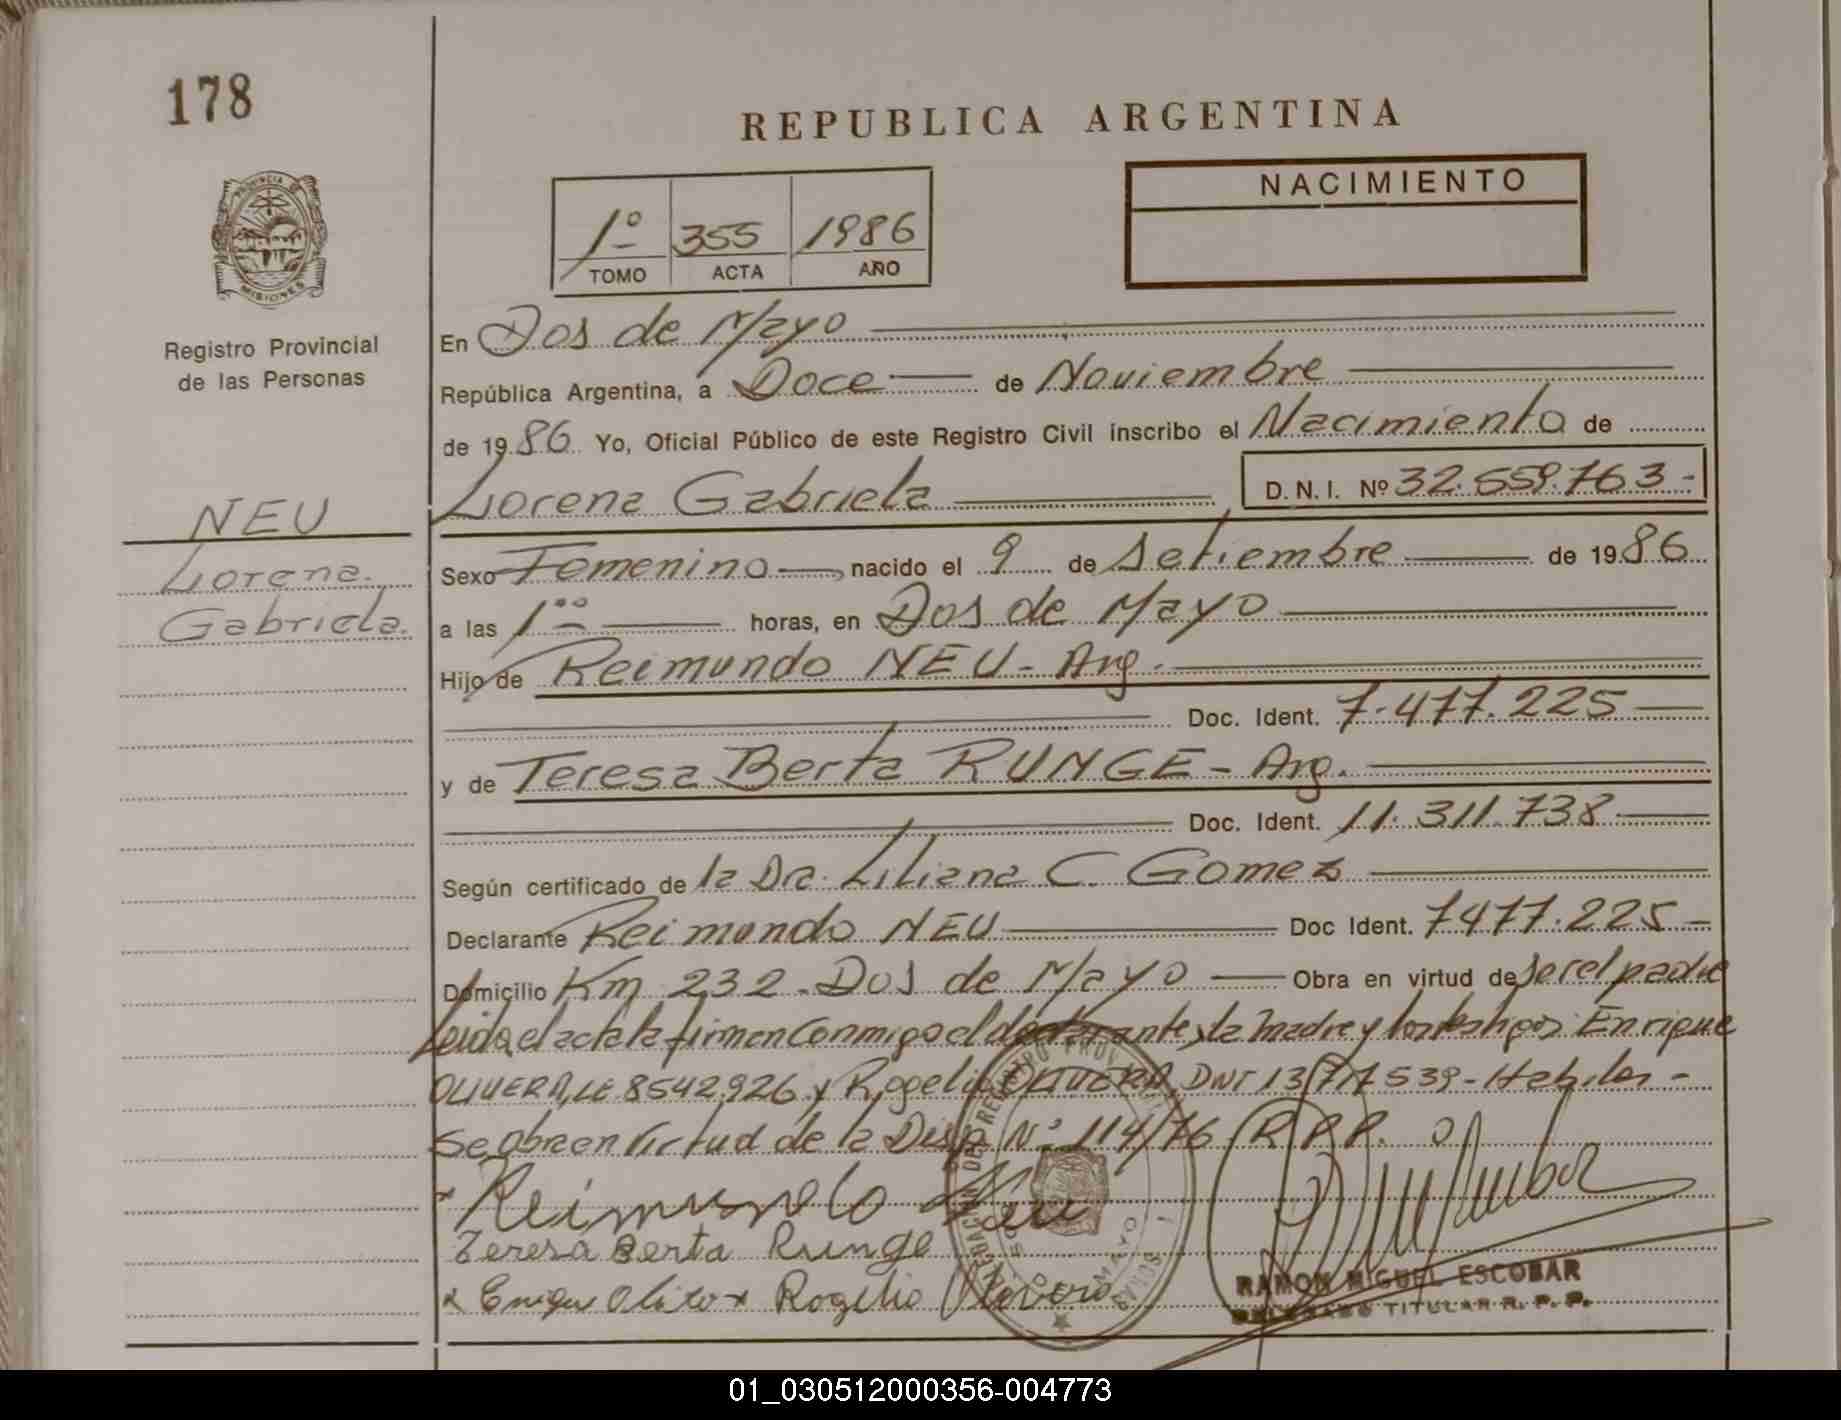 178
REPUBLICA ARGENTINA
PROVINCIA DE
MISIONES
Registro Provincial
de las Personas
1º 355 1986
TOMO ACTA AÑO
NACIMIENTO
En Dos de Mayo
República Argentina, a Doce de Noviembre
de 1986 Yo, Oficial Público de este Registro Civil inscribo el Nacimiento de
Lorena Gabriela D. N. I. Nº 32.659.763-
NEU
Lorena
Gabriela.
Sexo Femenino nacido el 9 de Setiembre de 1986
a las 1ºº horas, en Dos de Mayo
Hijo de Reimundo NEU - Arg.
Doc. Ident. 7.477.225
y de Teresa Berta RUNGE - Arg.
Doc. Ident. 11.311.738
Según certificado de la Dra. Liliana C. Gomez
Declarante Reimundo NEU Doc Ident. 7477.225
Domicilio Km 232. Dos de Mayo Obra en virtud de ser el padre
Leida el acta la firman conmigo el declarante, la madre y los testigos: Enrique
OLIVERA, LE. 8542.926 y Rogelio OLIVERA DNI 13.717.539 - Habiles -
Se obra en virtud de la Disp. Nº 114/76 R.P.P.
x Reimundo Neu
Teresa Berta Runge
x Rogelio Olivera
RAMON MIGUEL ESCOBAR
DELEGADO TITULAR R. P. P.
01_030512000356-004773